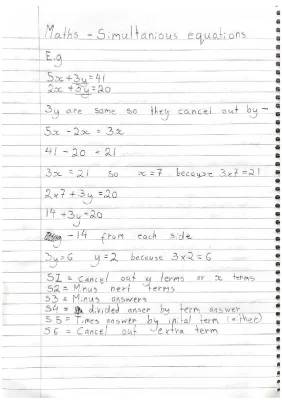 Maths - Simultanious equations
E.g
5x + 3y = 41
2x + 3y = 20
3y are same so they cancel out by -
5x - 2x = 3x
41 - 20 = 21
3x = 21 so x = 7 because 3x7 = 21
2x7 + 3y = 20
14 + 3y = 20
-14 from each side
3y = 6 y = 2 because 3x2 = 6
S1 = Cancel out y terms or x terms
S2 = Minus next terms
S3 = Minus answers
S4 = divided anser by term answer
S5 = Times answer by inital term (either)
S6 = Cancel out extra term